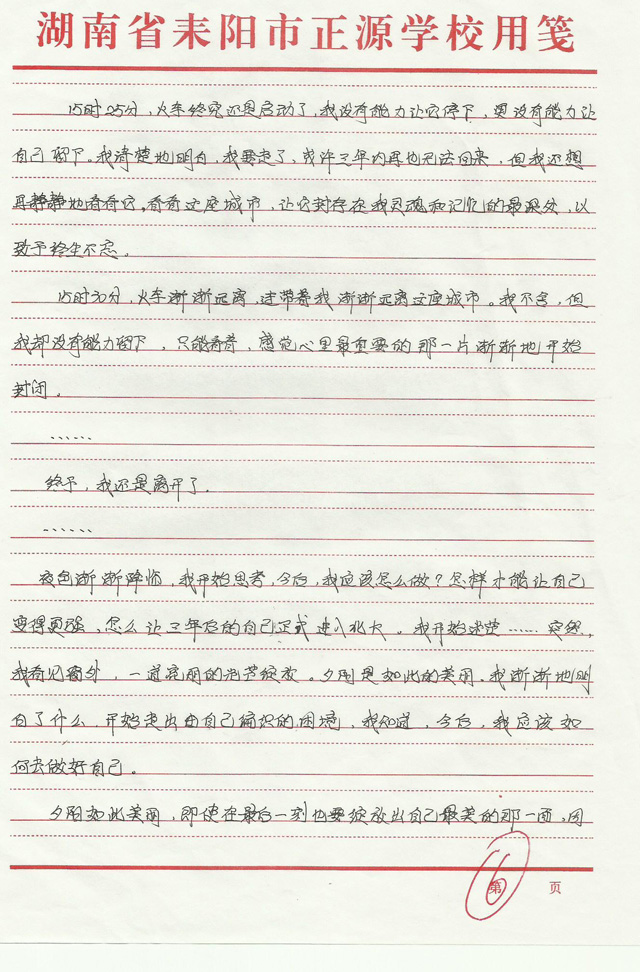 湖南省耒阳市正源学校用笺
15时25分，火车终究还是启动了，我没有能力让它停下，更没有能力让
自己留下。我清楚地明白，我要走了，或许三年内再也无法回来，但我还想
再静静地看看它，看看这座城市，让它封存在我灵魂和记忆的最深处，以
致于终生不忘。
15时30分，火车渐渐远离，连带着我渐渐远离这座城市。我不舍，但
我却没有能力留下，只能看着，感觉心里最重要的那一片渐渐地开始
封闭。
……
终于，我还是离开了.
……
夜色渐渐降临，我开始思考，今后，我应该怎么做？怎样才能让自己
变得更强、怎么让三年后的自己正式进入北大。我开始迷茫……突然，
我看见窗外，一道亮丽的光芒绽放。夕阳是如此的美丽，我渐渐地明
白了什么，开始走出由自己编织的困境，我知道，今后，我应该如
何去做好自己。
夕阳如此美丽，即使在最后一刻也要绽放出自己最美的那一面，因
第 6 页